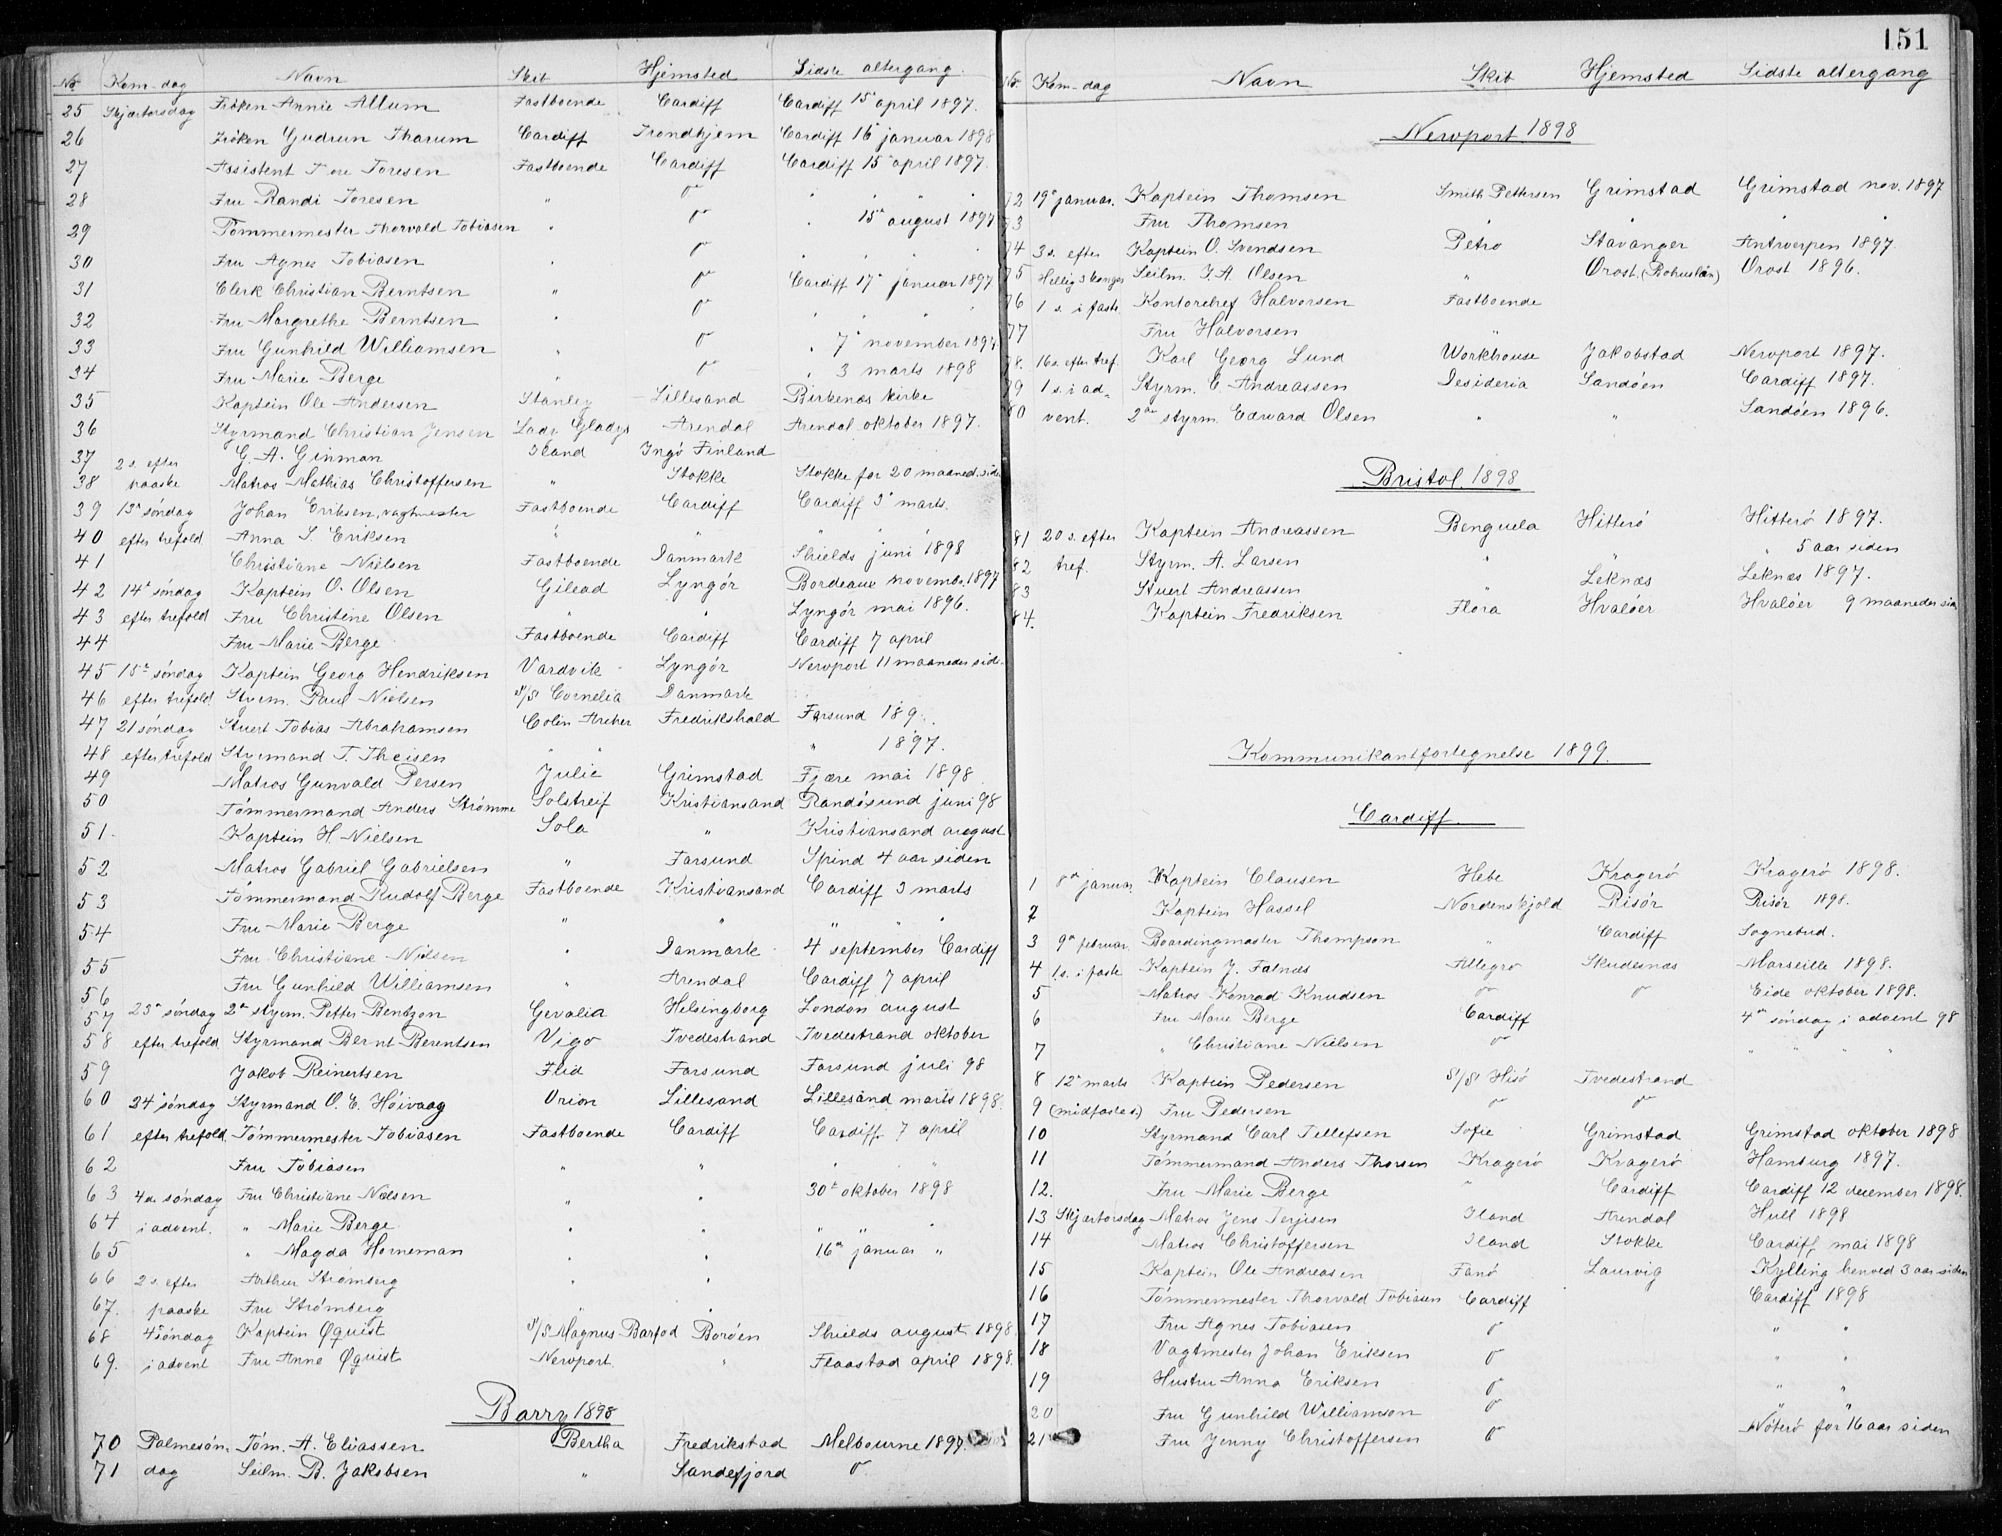 No Kom-dag Navn Skib Hjemsted Sidste altergang.
25 Skjærtorsdag Fröken Annie Allum Fastboende Cardiff Cardiff 15 april 1897.
26 Fröken Gudrun Tharum Cardiff Trondhjem Cardiff 16 januar 1898
27 Assistent Tore Toresen Fastboende Cardiff Cardiff 15 april 1897.
28 Fru Randi Toresen " o " " "
29 Tömmermester Thorvald Tobiasen " o " 15de august 1897
30 Fru Agnes Tobiasen " o "
31 Clerk Christian Berntsen " o Cardiff 17 januar 1897
32 Fru Margrethe Berntsen " o " " "
33 Fru Gunhild Williamsen " o " 7 november 1897
34 Fru Marie Berge " o " 3 marts 1898
35 Kaptein Ole Andersen Stanley Lillesand Birkenæs kirke
36 Styrmand Christian Jensen Lady Gladys Arendal Arendal oktober 1897.
37 2 s. efter G. A. Ginman Iland Ingö Finland
38 paaske Matros Mathias Christoffersen " Stokke Stokke for 20 maaned. siden
39 13de söndag Johan Eriksen, vagtmester Fastboende Cardiff Cardiff 3 marts.
40 efter trefold Anna S. Eriksen " " " "
41 Christiane Nielsen Fastboende Danmark Shields juni 1898
42 14de söndag Kaptein O. Olsen Gilead Lyngör Bordeaux novembe. 1897
43 efter trefold Fru Christine Olsen " " Lyngör mai 1896.
44 Fru Marie Berge Fastboende Cardiff Cardiff 7 april
45 15de söndag Kaptein Georg Hendriksen Vardvik Lyngör Newport 11 maaneder side.
46 efter trefold. Styrm. Paul Nielsen S/S Cornelia Danmark
47 21 söndag Stuert Tobias Abrahamsen Colin Archer Fredrikshald Farsund 189.
48 efter trefold Styrmand T. Theisen " " " 1897.
49 Matros Gunvald Persen Julie Grimstad Fjære mai 1898
50 Tömmermand Anders Strömme Solstreif Kristiansand Randösund juni 98
51. Kaptein H. Nielsen Sola " Kristiansand august
52 Matros Gabriel Gabrielsen " Farsund Spind 4 aar siden
53 Tömmermand Rudolf Berge Fastboende Kristiansand Cardiff 3 marts
54 Fru Marie Berge " " " " "
55 Fru Christiane Nielsen " Danmark 4 september Cardiff
56 Fru Gunhild Williamsen " Arendal Cardiff 7 april
57 23de söndag 2den styrm. Petter Bendzon Gevalia Helsingborg London august
58 efter trefold Styrmand Bernt Berentsen Vigo Tvedestrand Tvedestrand oktober
59 Jakob Reinertsen Flid Farsund Farsund juli 98
60 24 söndag Styrmand O. E. Höivaag Orion Lillesand Lillesand marts 1898.
61 efter trefold. Tömmermester Tobiasen Fastboende Cardiff Cardiff 7 april
62 Fru Tobiasen " " " "
63 4de söndag Fru Christiane Nielsen " " 30te oktober 1898
64 i advent. " Marie Berge " " " " "
65 " Magda Horneman " " 16de januar "
66 2 s. efter Arthur Strömberg " "
67. paaske Fru Strömberg " "
68 4de söndag Kaptein Øquist S/S Magnus Barfod Boröen Shields august 1898
69. i advent Fru Anna Øquist Newport. " Flaastad april 1898.
Barry 1898
70 Palmesön. Töm. A. Eliassen Bertha Fredrikstad Melbourne 1897.
71 dag Seilm. B. Jakobsen " Sandefjord o
151
No. Kom-dag Navn Skib Hjemsted Sidste altergang
Newport. 1898
72 19de januar. Kaptein Thomsen Smith Pettersen Grimstad Grimstad nov. 1897
73 Fru Thomsen " " " "
74 3 s. efter Kaptein O. Svendsen Petro Stavanger Antwerpen 1897
75 Hellig 3 konger Seilm. J. A. Olsen " Orost (Bohuslän) Orost 1896.
76 1 s. i faste Kontorchef Halvorsen Fastboende
77 Fru Halvorsen "
78. 16 s. efter tref. Karl Georg Lund Workhouse Jakobstad Newport 1897.
79 1 s. i ad- Styrm. C. Andreassen Desideria Sandöen Cardiff 1897.
80 vent. 2den styrm. Edvard Olsen " " Sandöen 1896.
Bristol. 1898
81 20 s. efter Kaptein Andreassen Benguela Hitterö Hitterö 1897.
82 tref. Styrm. A. Larsen " " " 5 aar siden
83 Stuert Andreassen " Leknæs Leknæs 1897.
84. Kaptein Fredriksen Flora Hvalöer Hvalöer 9 maaneder sid.
Kommunikantfortegnelse 1899.
Cardiff.
1 8de januar. Kaptein Clausen Hebe Kragerö Kragerö 1898.
2 Kaptein Hassel Nordenskjold Risör Risör 1898.
3 9de februar. Boardingmaster Thompson " Cardiff Sognebud.
4 1 s. i faste Kaptein J. Falnæs Allegro Skudesnæs Marseille 1898.
5 Matros Konrad Knudsen o o Eide oktober 1898.
6 Fru Marie Berge Cardiff 4de söndag i advent 98
7 " Christiane Nielsen o " " " "
8 12 marts Kaptein Pedersen S/S Hisö Tvedestrand
9 (midfastes.) Fru Pedersen o o
10 Styrmand Carl Tellefsen Sofie Grimstad Grimstad oktober 1898
11 Tömmermand Anders Thorsen Kragerö Kragerö Hamburg 1897.
12. Fru Marie Berge " Cardiff Cardiff 12 december 1898.
13 Skjærtorsdag Matros Jens Terjesen Iland Arendal Hull 1898
14 Matros Christoffersen Iland Stokke Cardiff mai 1898
15 Kaptein Ole Andreasen Fanö Laurvig Kylling henved 3 aar siden
16 Tömmermester Thorvald Tobiasen Cardiff Cardiff 1898
17 Fru Agnes Tobiasen o " "
18 Vagtmester Johan Eriksen o " "
19 Hustru Anna Eriksen o " "
20 Fru Gunhild Williamson o " "
21 Fru Jenny Christoffersen o Nöterö for 16 aar siden